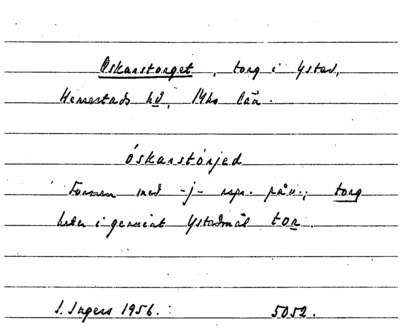 Oskarstorget, torg i Ystad,
Herrestads hd, Mhs län.
óskarstórjed
Formen med -j- repr. påv.; torg
heter i genuint Ystadmål tor.
I. Ingers 1956. 5052.